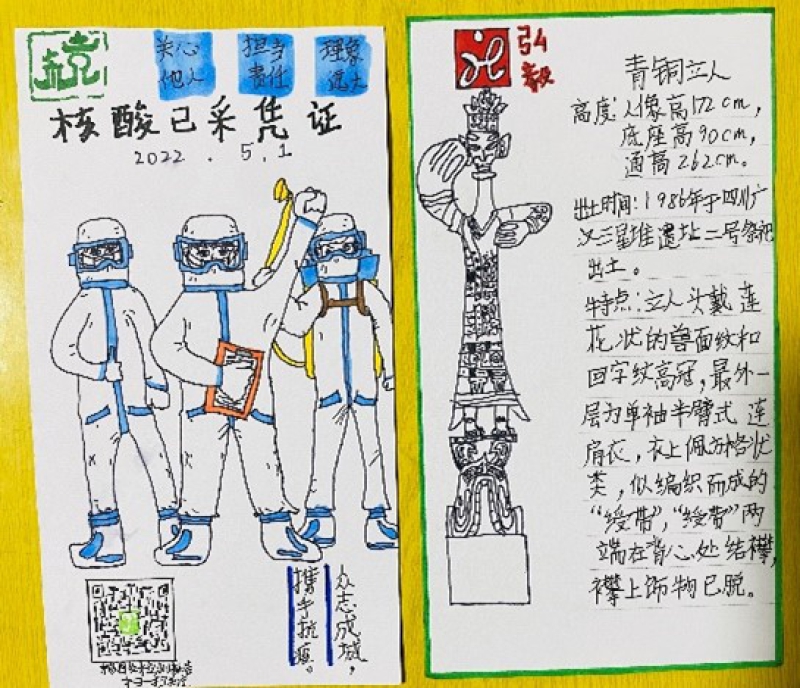 关心
他人
担当
责任
理象
远大
核酸已采凭证
2022.5.1
众志成城,
携手抗疫。
弘
毅
青铜立人
高度:人像高172cm,
底座高90cm,
通高262cm。
出土时间:1986年于四川广
汉三星堆遗址二号祭祀
出土。
特点:立人头戴莲
花状的兽面纹和
回字纹高冠,最外一
层为单袖半臂式连
肩衣,衣上佩方格状
类,似编织而成的
“绶带”,“绶带”两
端在背心处结襻,
襻上饰物已脱。